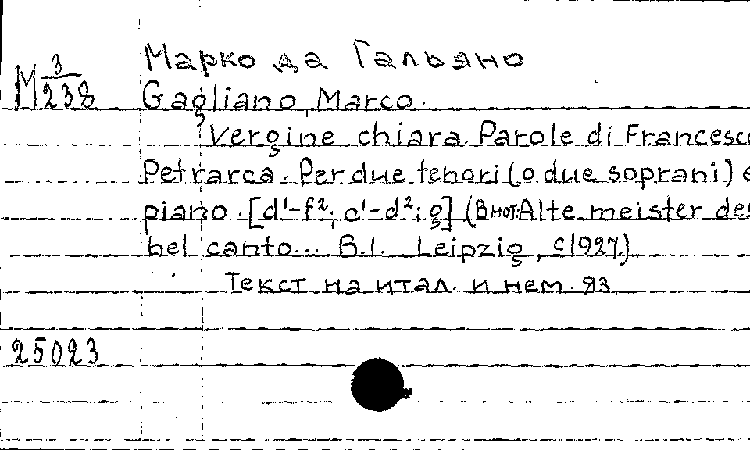 Марко да Гальяно
М 3/238
Gagliano, Marco.
Vergine chiara. Parole di Francesco
Petrarca. Per due tenori (o due soprani) e
piano. [d¹-f²; c¹-d²; g] (В нот: Alte meister des
bel canto... B.1. Leipzig, c1927.)
Текст на итал. и нем. яз.
25023